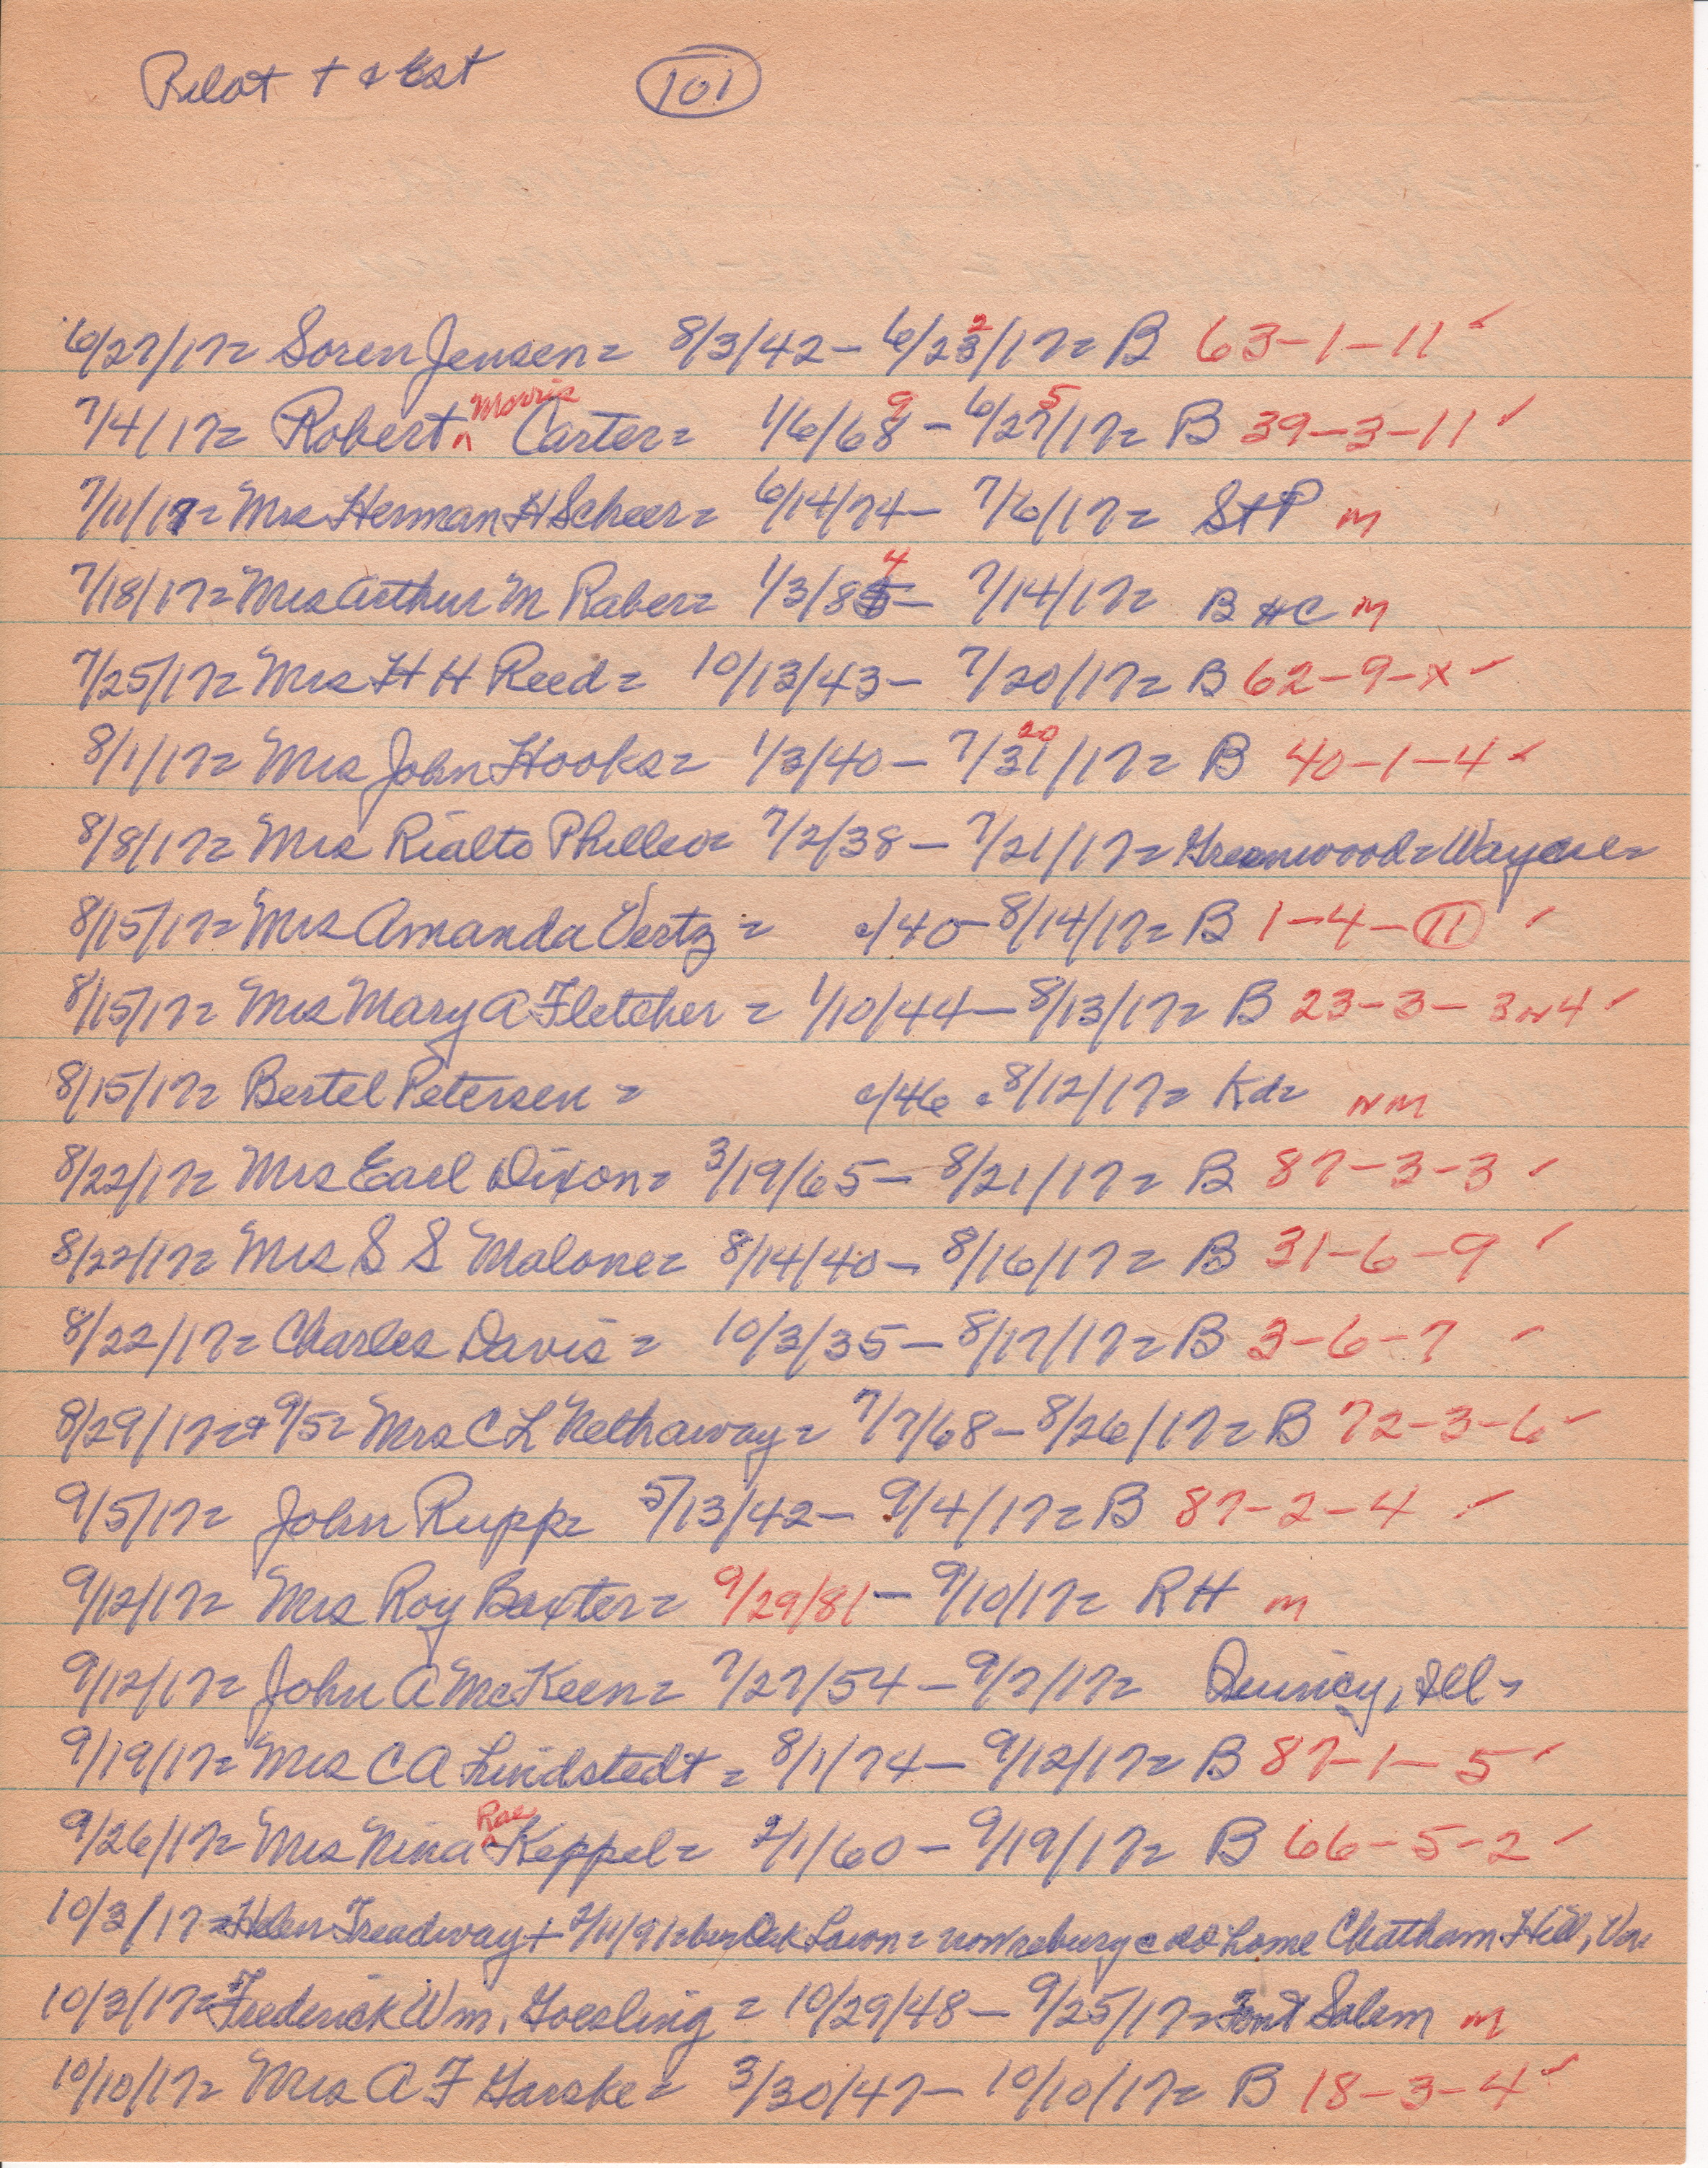 Pilot + & Est (101)
6/27/17= Soren Jensen= 8/3/42- 6/23/17= B 63-1-11 ✓
7/4/17= Robert Morris Carter= 1/6/68 9 - 6/27 5/17= B 39-3-11 ✓
7/11/17= Mrs Herman H Scheer= 6/14/74- 7/6/17= StP M
7/18/17= Mrs Arthur M Raber= 1/3/85 4- 7/14/17= B HC M
7/25/17= Mrs H H Reed= 10/13/43- 7/20/17= B 62-9-x ✓
8/1/17= Mrs John Hooks= 1/3/40- 7/31 20/17= B 40-1-4 ✓
8/8/17= Mrs Rialto Philleo= 7/2/38- 7/21/17= Greenwood=Wayne=
8/15/17= Mrs Amanda Vertz= c/40-8/14/17= B 1-4-11 ✓
8/15/17= Mrs Mary A Fletcher= 1/10/44-8/13/17= B 23-3-3 N4 ✓
8/15/17= Bertel Petersen= c/46 - 8/12/17= Kd= NM
8/22/17= Mrs Earl Dixon= 3/19/65- 8/21/17= B 87-3-3 ✓
8/22/17= Mrs S S Malone= 8/14/40- 8/16/17= B 31-6-9 ✓
8/22/17= Charles Davis= 10/3/35-8/17/17= B 3-6-7 ✓
8/29/17=& 9/5= Mrs C L Nethaway= 7/7/68-8/26/17= B 72-3-6 ✓
9/5/17= John Rupp= 5/13/42- 9/4/17= B 87-2-4 ✓
9/12/17= Mrs Roy Baxter= 9/29/81- 9/10/17= RH M
9/12/17= John A McKeen= 7/27/54-9/7/17= Quincy, Ill=
9/19/17= Mrs C A Lindstedt= 8/1/74- 9/12/17= B 87-1-5 ✓
9/26/17= Mrs Nina Rae Keppel= 2/1/60- 9/19/17= B 66-5-2 ✓
10/3/17= Helen Treadway + 2/11/91=bur Oak Lawn= now reburg @ old home Chatham Hill, Va.
10/3/17= Frederick Wm. Goesling= 10/29/48- 9/25/17= Salem M
10/10/17= Mrs A F Garske= 3/30/47- 10/10/17= B 18-3-4 ✓